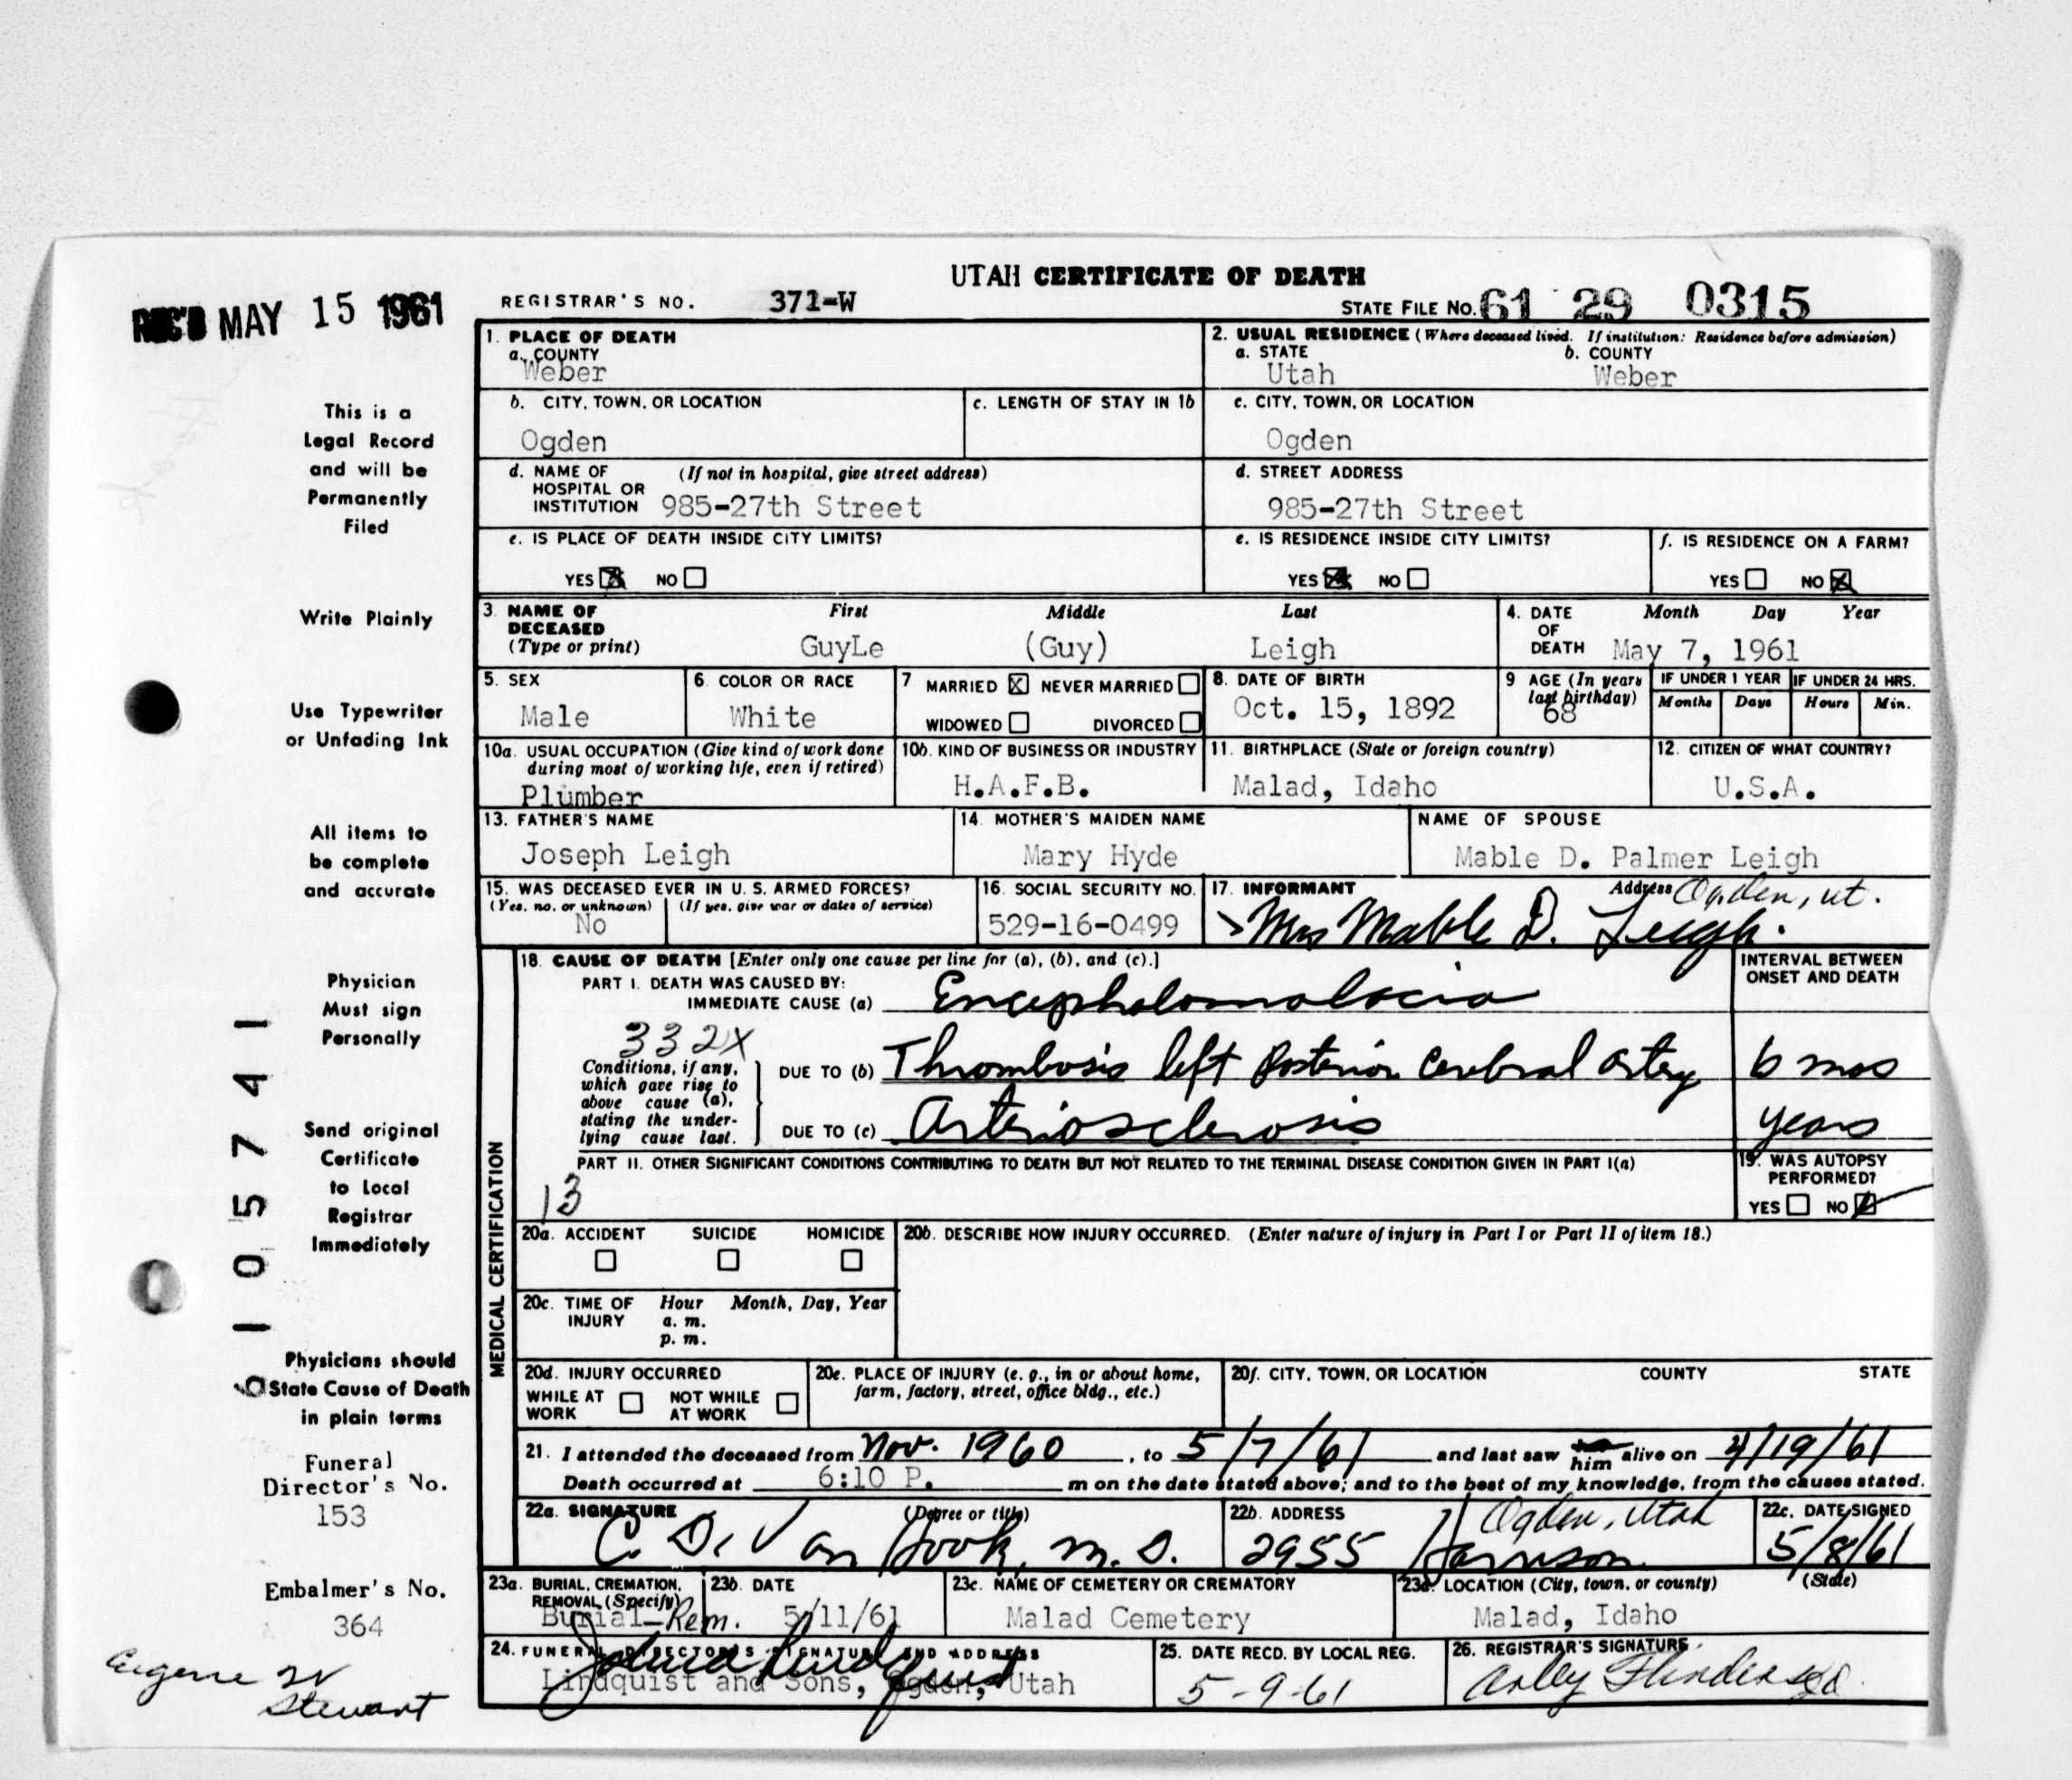 UTAH CERTIFICATE OF DEATH
REC'D MAY 15 1961
REGISTRAR'S NO. 371-W
STATE FILE NO. 61 29 0315
This is a
Legal Record
and will be
Permanently
Filed
Write Plainly
Use Typewriter
or Unfading Ink
All items to
be complete
and accurate
Physician
Must sign
Personally
Send original
Certificate
to Local
Registrar
Immediately
Physicians should
State Cause of Death
in plain terms
Funeral
Director's No.
153
Embalmer's No.
364
Eugene W
Stewart
61 105741
1. PLACE OF DEATH
a. COUNTY
Weber
2. USUAL RESIDENCE (Where deceased lived. If institution: Residence before admission)
a. STATE b. COUNTY
Utah Weber
b. CITY, TOWN, OR LOCATION
Ogden
c. LENGTH OF STAY IN 1b
c. CITY, TOWN, OR LOCATION
Ogden
d. NAME OF (If not in hospital, give street address)
HOSPITAL OR
INSTITUTION 985-27th Street
d. STREET ADDRESS
985-27th Street
e. IS PLACE OF DEATH INSIDE CITY LIMITS?
YES X NO
e. IS RESIDENCE INSIDE CITY LIMITS?
YES X NO
f. IS RESIDENCE ON A FARM?
YES NO X
3. NAME OF First Middle Last
DECEASED
(Type or print) GuyLe (Guy) Leigh
4. DATE Month Day Year
OF
DEATH May 7, 1961
5. SEX
Male
6. COLOR OR RACE
White
7 MARRIED X NEVER MARRIED
WIDOWED DIVORCED
8. DATE OF BIRTH
Oct. 15, 1892
9 AGE (In years
last birthday)
68
IF UNDER 1 YEAR IF UNDER 24 HRS.
Months Days Hours Min.
10a. USUAL OCCUPATION (Give kind of work done
during most of working life, even if retired)
Plumber
10b. KIND OF BUSINESS OR INDUSTRY
H.A.F.B.
11. BIRTHPLACE (State or foreign country)
Malad, Idaho
12. CITIZEN OF WHAT COUNTRY?
U.S.A.
13. FATHER'S NAME
Joseph Leigh
14. MOTHER'S MAIDEN NAME
Mary Hyde
NAME OF SPOUSE
Mable D. Palmer Leigh
15. WAS DECEASED EVER IN U. S. ARMED FORCES?
(Yes, no, or unknown) (If yes, give war or dates of service)
No
16. SOCIAL SECURITY NO.
529-16-0499
17. INFORMANT Address Ogden, Ut.
Mrs Mable D. Leigh.
MEDICAL CERTIFICATION
18. CAUSE OF DEATH [Enter only one cause per line for (a), (b), and (c).]
INTERVAL BETWEEN
ONSET AND DEATH
PART I. DEATH WAS CAUSED BY:
IMMEDIATE CAUSE (a) Encephalomalacia
332X
Conditions, if any,
which gave rise to
above cause (a),
stating the under-
lying cause last.
DUE TO (b) Thrombosis left Posterior Cerebral artery 6 mos
DUE TO (c) Arteriosclerosis years
PART II. OTHER SIGNIFICANT CONDITIONS CONTRIBUTING TO DEATH BUT NOT RELATED TO THE TERMINAL DISEASE CONDITION GIVEN IN PART I(a)
13
19. WAS AUTOPSY
PERFORMED?
YES NO
20a. ACCIDENT SUICIDE HOMICIDE
20b. DESCRIBE HOW INJURY OCCURRED. (Enter nature of injury in Part I or Part II of item 18.)
20c. TIME OF Hour Month, Day, Year
INJURY a. m.
p. m.
20d. INJURY OCCURRED
WHILE AT NOT WHILE
WORK AT WORK
20e. PLACE OF INJURY (e. g., in or about home,
farm, factory, street, office bldg., etc.)
20f. CITY, TOWN, OR LOCATION COUNTY STATE
21. I attended the deceased from Nov. 1960, to 5/7/61 and last saw him alive on 4/19/61
Death occurred at 6:10 P. m on the date stated above; and to the best of my knowledge, from the causes stated.
22a. SIGNATURE (Degree or title)
C. D. Van Hook, M. D.
22b. ADDRESS Ogden, Utah
2955 Harrison
22c. DATE SIGNED
5/8/61
23a. BURIAL, CREMATION,
REMOVAL (Specify)
Burial-Rem.
23b. DATE
5/11/61
23c. NAME OF CEMETERY OR CREMATORY
Malad Cemetery
23d. LOCATION (City, town, or county) (State)
Malad, Idaho
24. FUNERAL DIRECTOR'S SIGNATURE AND ADDRESS
Lindquist and Sons, Ogden, Utah
25. DATE RECD. BY LOCAL REG.
5-9-61
26. REGISTRAR'S SIGNATURE